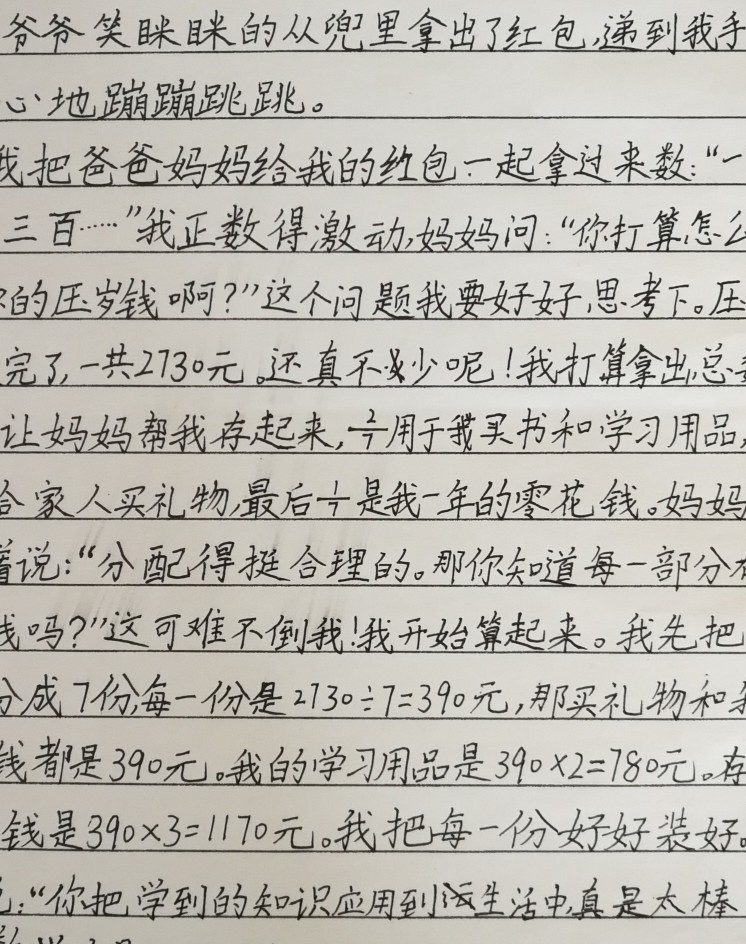 爷爷笑眯眯的从兜里拿出了红包,递到我手
心地蹦蹦跳跳。
我把爸爸妈妈给我的红包一起拿过来数:“一
三百……”我正数得激动,妈妈问:“你打算怎么
的压岁钱啊?”这个问题我要好好思考下。压
完了,一共2730元。还真不少呢!我打算拿出总
让妈妈帮我存起来,2/7用于我买书和学习用品,
给家人买礼物,最后1/7是我一年的零花钱。妈妈
着说:“分配得挺合理的。那你知道每一部分有
钱吗?”这可难不倒我!我开始算起来。我先把
分成7份,每一份是2730÷7=390元,那买礼物和我
钱都是390元。我的学习用品是390×2=780元。存
钱是390×3=1170元。我把每一份好好装好。
“你把学到的知识应用到生活中,真是太棒